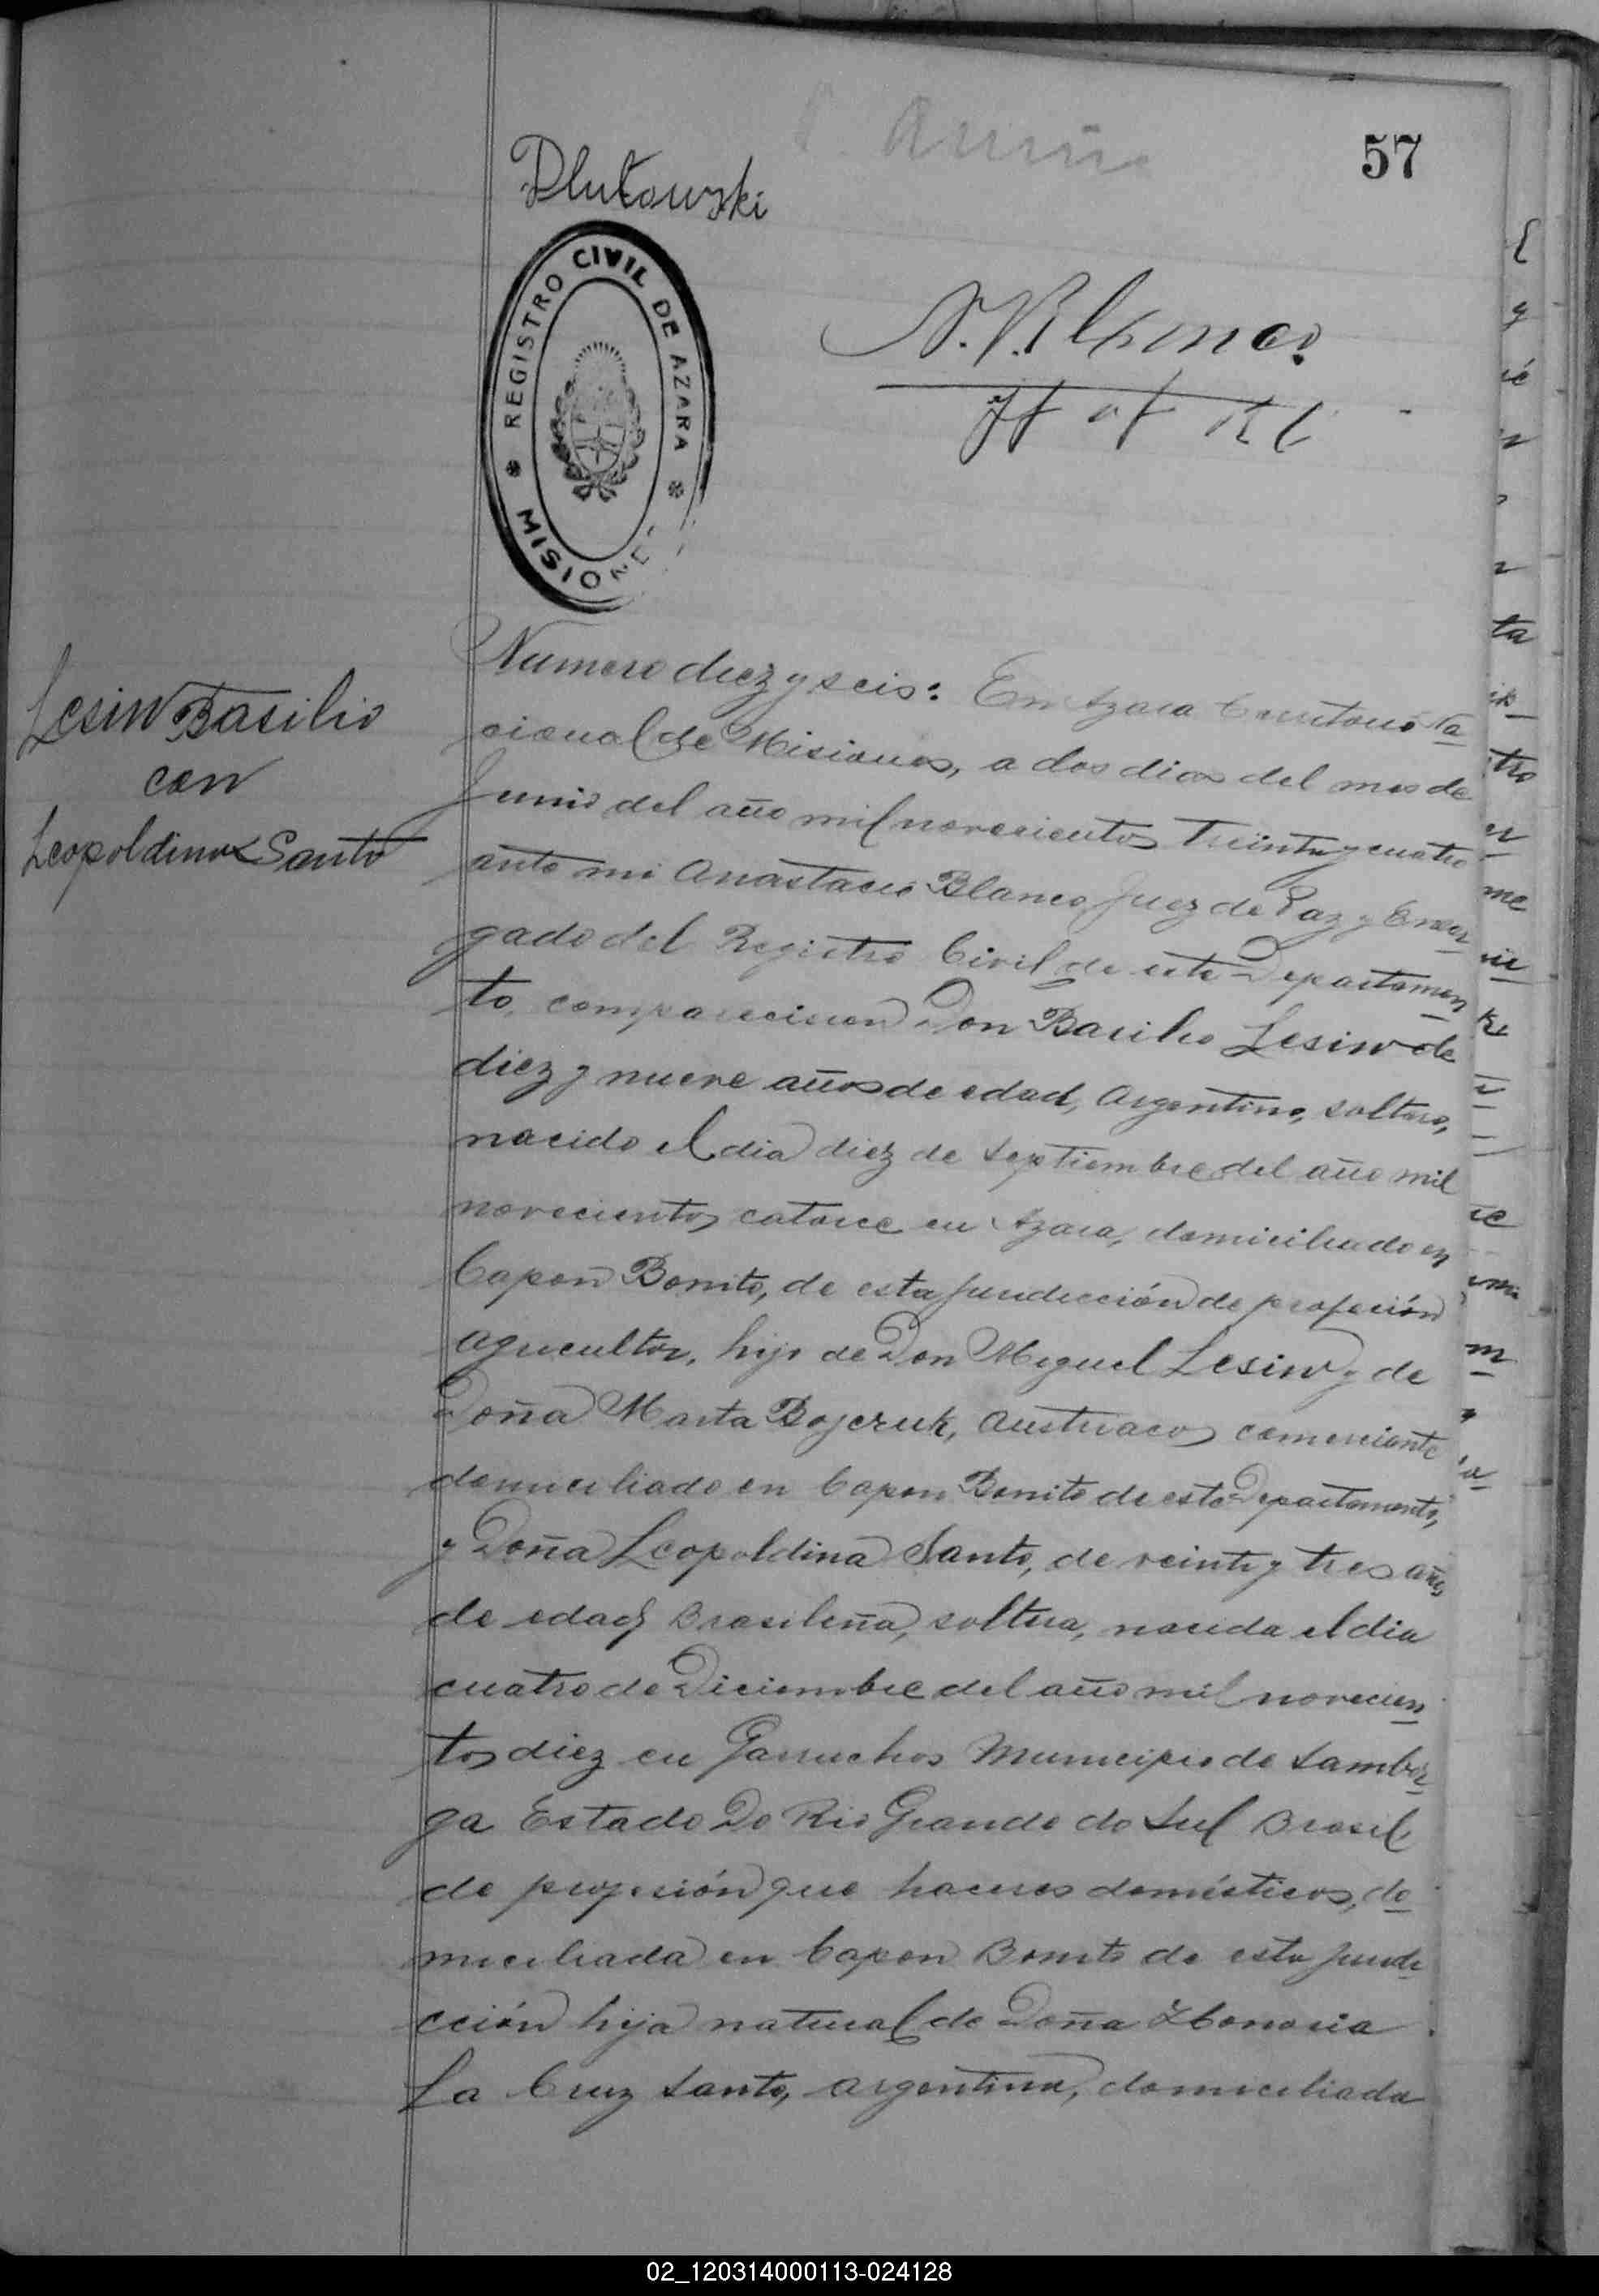 57
Dlutowski
REGISTRO CIVIL DE AZARA
MISIONES
A. Blanco
Lesiw Basilio
con
Leopoldina Santo
Numero diez y seis: En Azara Territorio Na
cional de Misiones, a dos dias del mes de
Junio del año mil novecientos treinta y cuatro
ante mi Anastacio Blanco Juez de Paz y Encar
gado del Registro Civil de este Departamen
to, comparecieron Don Basilio Lesiw de
diez y nueve años de edad, Argentino, soltero,
nacido el dia diez de Septiembre del año mil
novecientos catorce en Azara, domiciliado en
Capon Bonito, de esta juridicción de profesión
agricultor, hijo de Don Miguel Lesiw y de
Doña Marta Bojczuk, Austriacos comerciante
domiciliado en Capon Bonito de este Departamento,
y Doña Leopoldina Santo, de veinte y tres años
de edad, Brasileña, soltera, nacida el dia
cuatro de Diciembre del año mil novecien
tos diez en Garruchos Municipio de Sambor
ja Estado Do Rio Grande do Sul Brasil
de profesión que haceres domésticos, do
miciliada en Capon Bonito de esta juridi
cción hija natural de Doña Honoria
La Cruz Santo, argentina, domiciliada
02_120314000113-024128